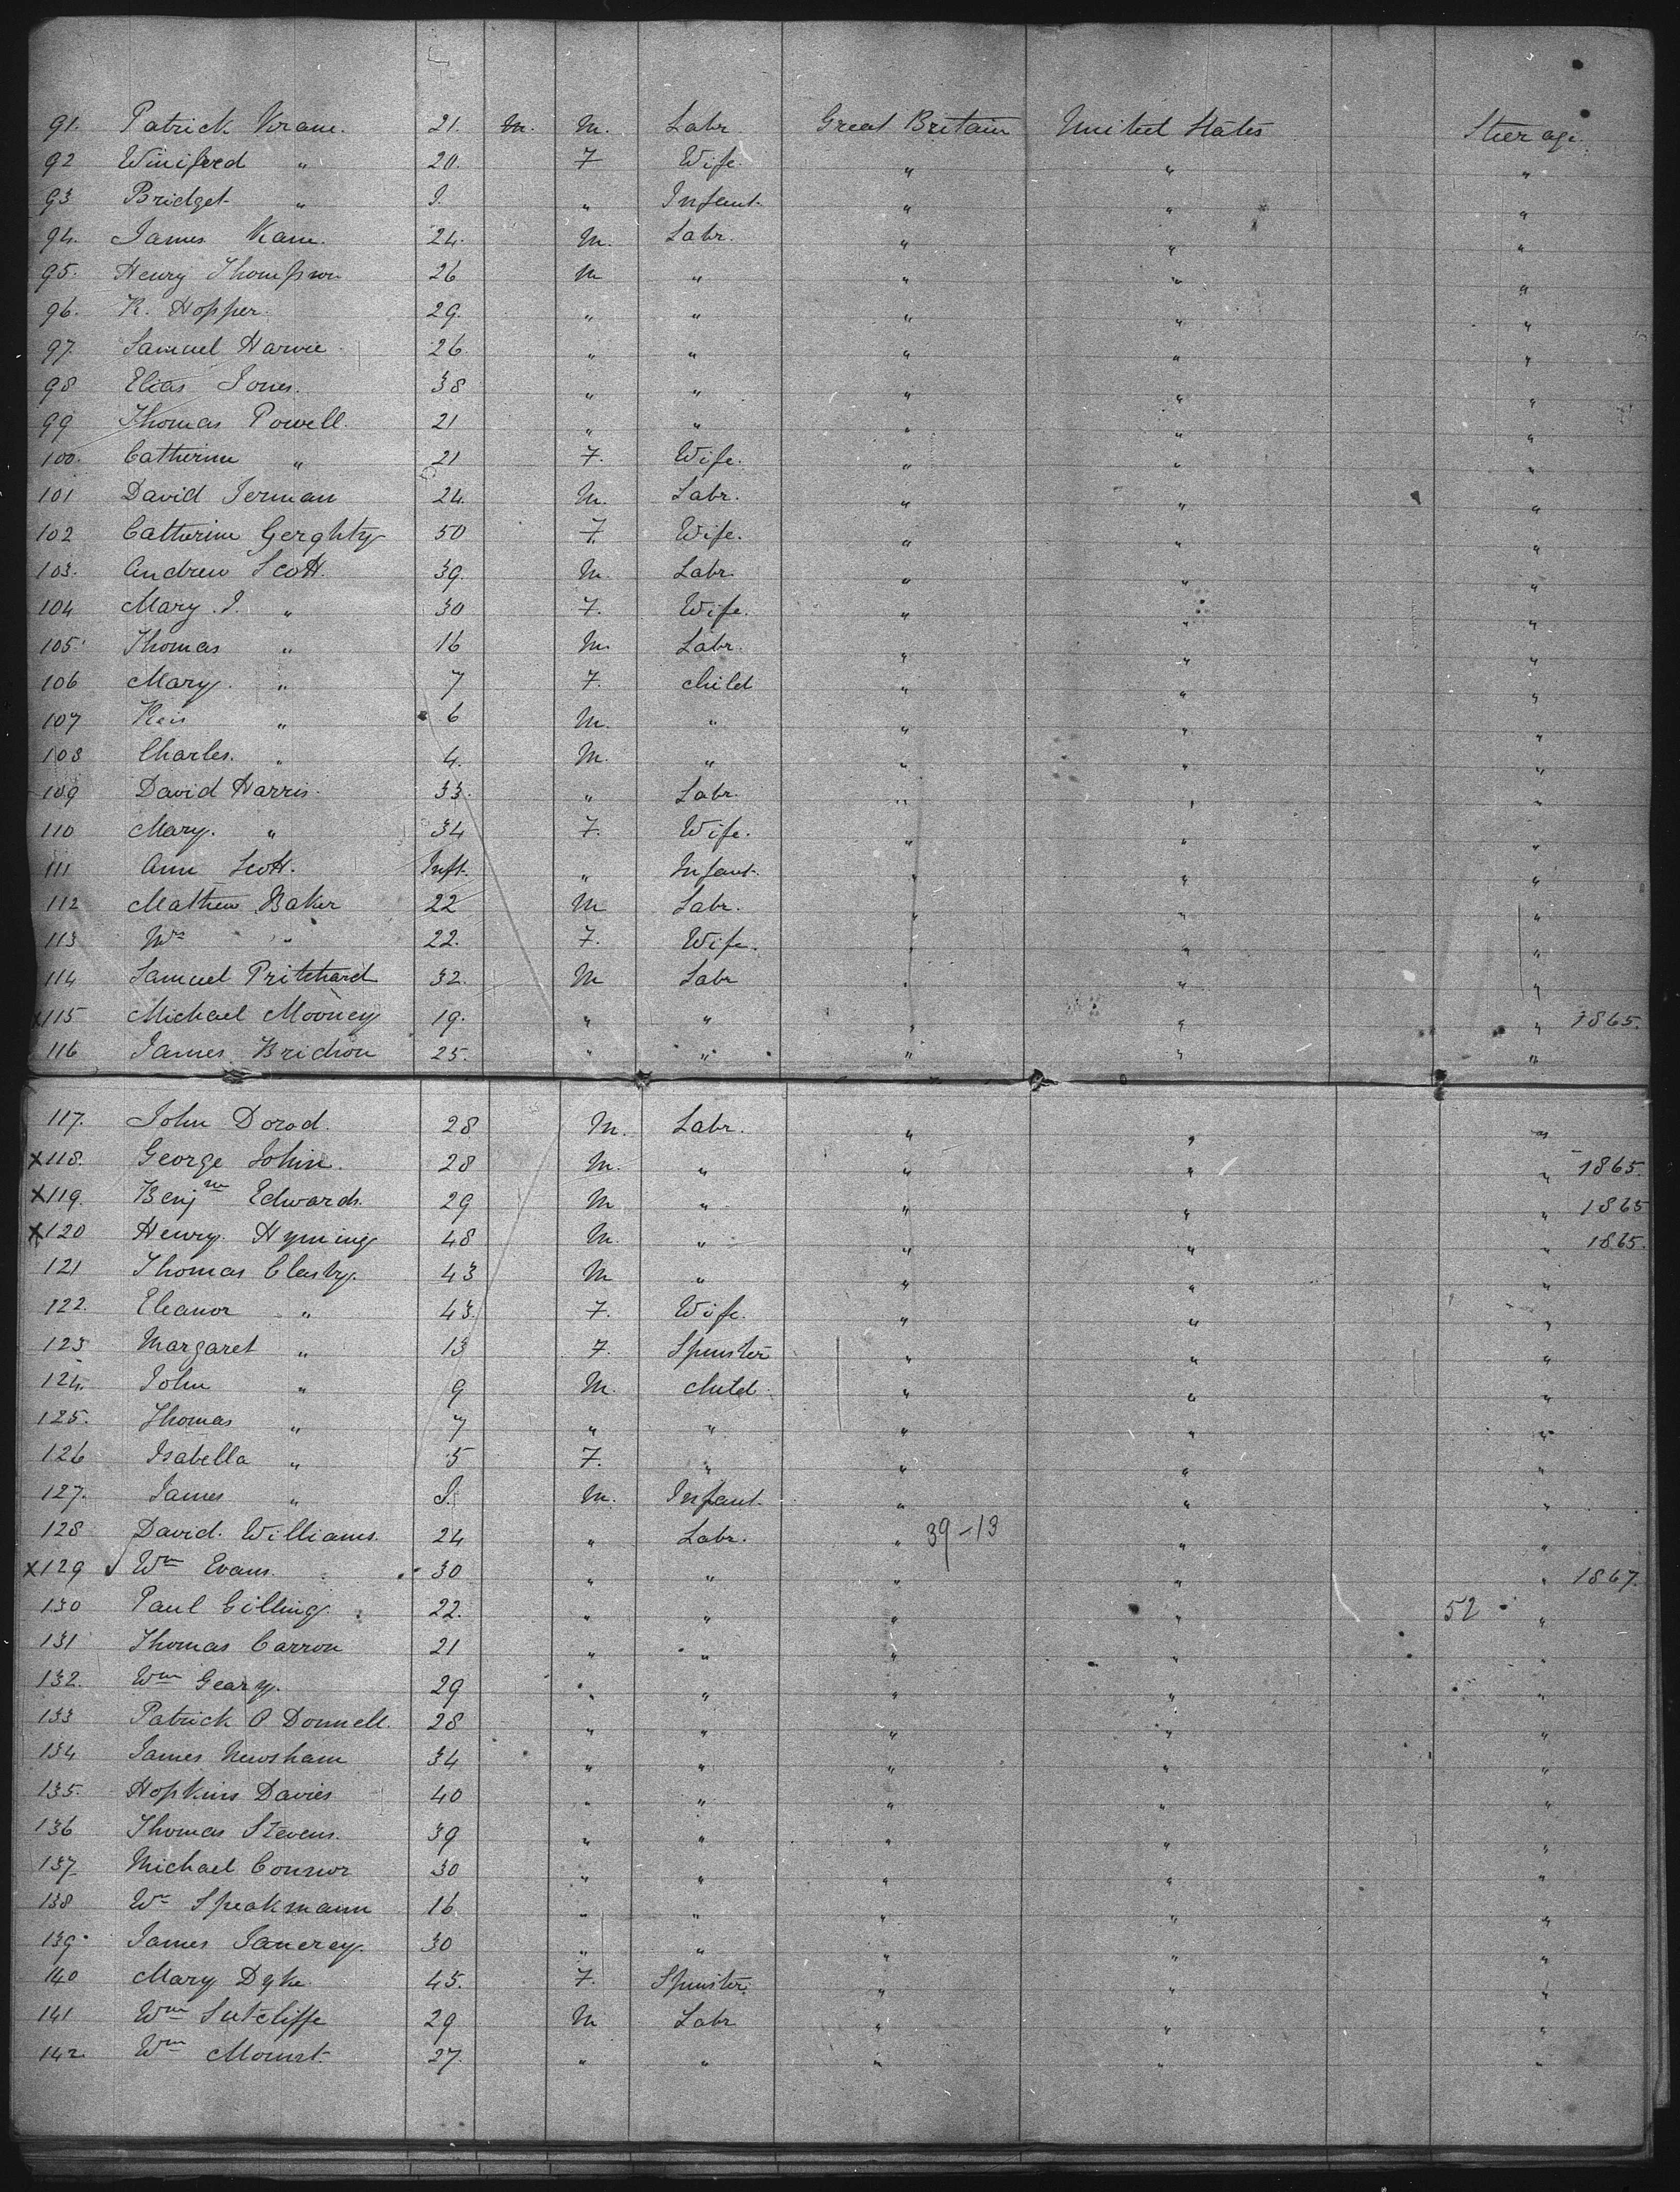 91. Patrick Krane. 21. M. M. Labr. Great Britain United States Steerage.
92 Winifred " 20. F Wife. " " "
93 Bridget " I. " Infant. " " "
94. James Kane. 24. M. Labr. " " "
95. Henry Thompson 26 M " " " "
96. R. Hopper. 29. " " " " "
97. Samuel Harvie 26 " " " " "
98 Elias Jones. 38 " " " " "
99 Thomas Powell. 21 " " " " "
100. Catherine " 21 F. Wife. " " "
101 David Jerman 24. M. Labr. " " "
102 Catherine Gerghty 50 F. Wife. " " "
103. Andrew Scott. 39. M. Labr. " " "
104 Mary J. " 30 F. Wife. " " "
105. Thomas " 16 M. Labr. " " "
106 Mary. " 7 F. Child " " "
107 " 6 M. " " " "
108 Charles. " 4. M. " " " "
109 David Harris. 33. " Labr. " " "
110 Mary. " 34 F. Wife. " " "
111 Ann Scott. Inft. " Infant. " " "
112 Mathew Baker 22 M Labr. " " "
113 Mrs " 22. F. Wife. " " "
114 Samuel Pritchard 32. M Labr " " "
x115 Michael Mooney 19. " " " " " 1865.
116 James 25. " " " " "
117. John Dorod. 28 M. Labr. " " "
x118. George John. 28 M. " " " " 1865.
x119. Benjm Edwards. 29 M " " " " 1865
x120 Henry Hyming 48 M. " " " " 1865.
121 Thomas Clasby. 43 M " " " "
122. Eleanor " 43. F. Wife. " " "
123 Margaret " 13 F. Spinster " " "
124. John " 9 M. Child. " " "
125. Thomas " 7 " " " " "
126 Isabella " 5 F. " " " "
127. James " I. M. Infant. " " "
128 David. Williams. 24 " Labr. " 39-13 " "
x129 Wm Evans. 30 " " " " " 1867.
130 Paul Gilling. 22. " " " " 52 "
131 Thomas Carron 21 " " " " "
132. Wm Geary. 29 " " " " "
133 Patrick O Donnell. 28 " " " " "
134 James Newsham 34 " " " " "
135. Hopkins Davies 40 " " " " "
136 Thomas Stevens. 39 " " " " "
137 Michael Connor 30 " " " " "
138 Wm Speakmann 16 " " " " "
139. James 30 " " " " "
140 Mary Dyke. 45. F. Spinster. " " "
141 Wm Sutcliffe 29 M Labr " " "
142 Wm Mount. 27. " " " " "